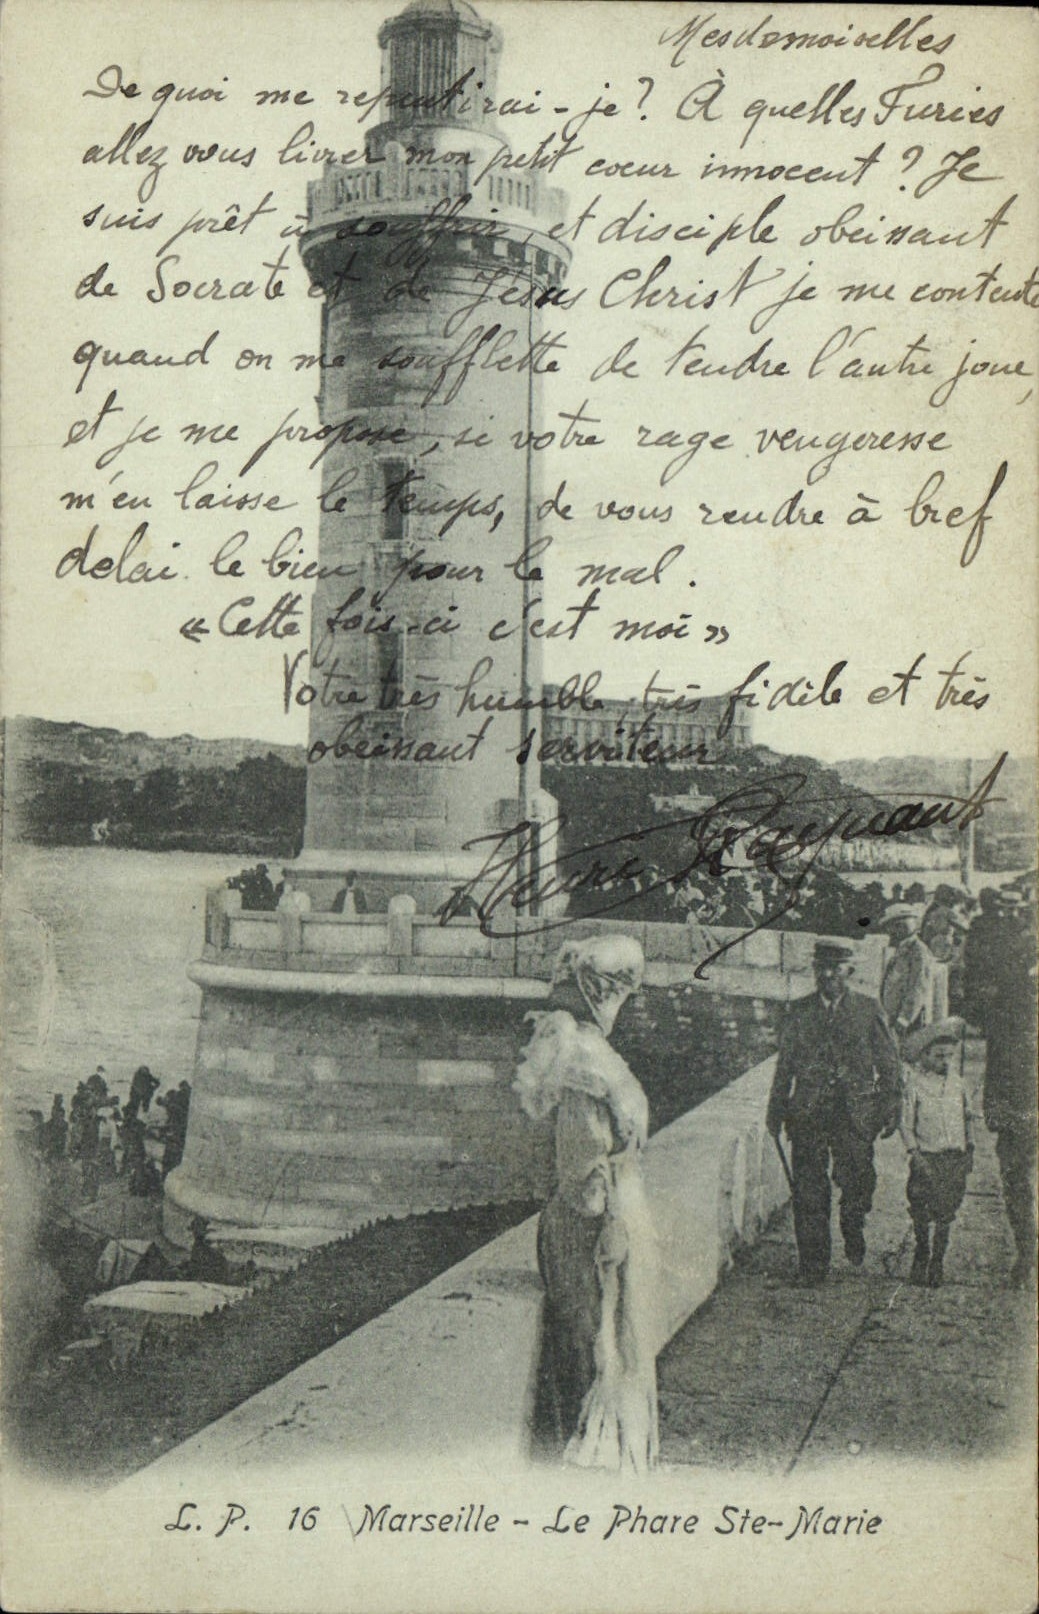 Mesdemoiselles
De quoi me repentirai-je? À quelles Furies
allez vous livrer mon petit coeur innocent? Je
suis prêt à souffrir, et disciple obeissant
de Socrate et de Jesus Christ je me contente
quand on me soufflette de tendre l'autre joue,
et je me propose, si votre rage vengeresse
m'en laisse le temps, de vous rendre à bref
delai le bien pour le mal.
« Cette fois-ci c'est moi »
Votre très humble, très fidèle et très
obeissant serviteur
L. P. 16 Marseille - Le Phare Ste-Marie